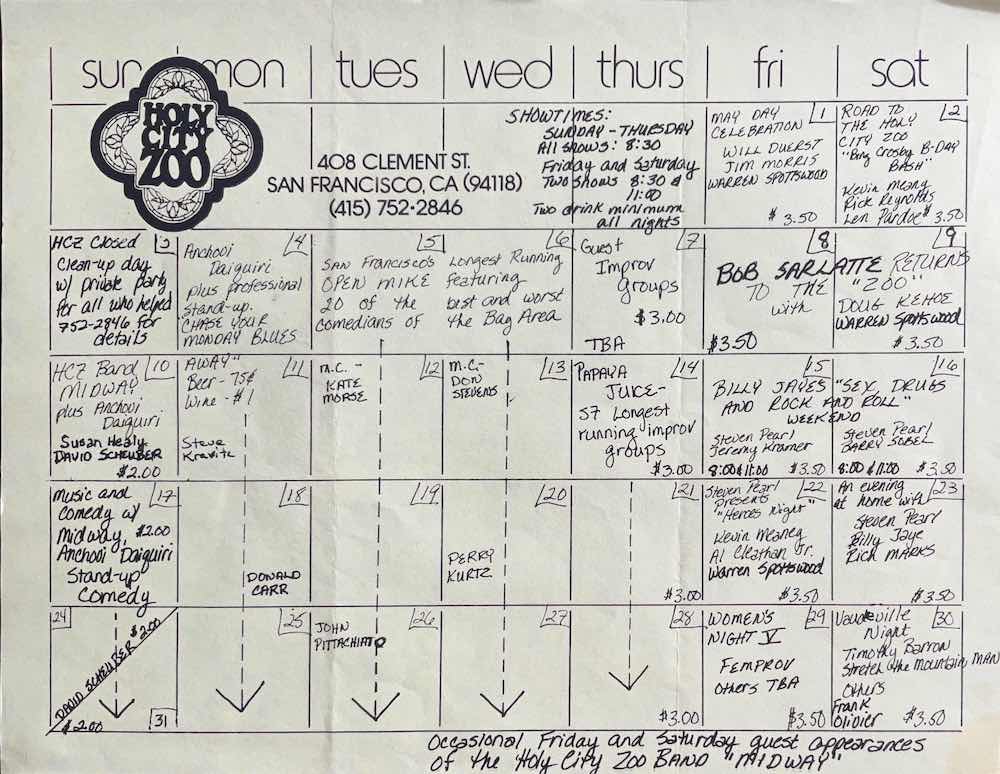 sun mon tues wed thurs fri sat
HOLY
CITY
ZOO
408 CLEMENT ST.
SAN FRANCISCO, CA (94118)
(415) 752·2846
SHOWTIMES:
SUNDAY - THURSDAY
All SHOWS: 8:30
Friday and Saturday
Two shows 8:30 &
11:00
Two drink minimum
all nights
MAY DAY 1
CELEBRATION
WILL DUERST
JIM MORRIS
WARREN SPOTTSWOOD
$3.50
ROAD TO 2
THE HOLY
CITY ZOO
"Bing Crosby B-DAY
BASH"
Kevin Meany
Rick Reynolds
Len Pardoe $3.50
HCZ Closed 3
Clean-up day
w/ private party
for all who helped
752-2846 for
details
Anchovi 4
Daiquiri
plus professional
Stand-up.
CHASE YOUR
MONDAY BLUES
5 6
SAN FRANCISCO'S Longest Running
OPEN MIKE featuring
20 of the best and worst
comedians of the Bag Area
Guest 7
Improv
groups
$3.00
TBA
8 9
BOB SARLATTE RETURNS
TO THE "ZOO"
with DOUG KEHOE
WARREN Spottswood
$3.50 $3.50
HCZ Band 10
MIDWAY
plus Anchovi
Daiquiri
Susan Healy
DAVID SCHEUBER
$2.00
AWAY" 11
Beer - 75¢
Wine - $1
Steve
Kravitz
M.C. - 12
KATE
MORSE
M.C. - 13
DON
STEVENS
PAPAYA 14
JUICE -
S7 Longest
running improv
groups
$3.00
15 16
BILLY JAYES "SEX, DRUGS
AND ROCK AND ROLL"
WEEKEND
Steven Pearl
Jeremy Kramer
8:00 & 11:00 $3.50
Steven Pearl
BARRY SOBEL
8:00 & 11:00 $3.50
Music and 17
Comedy w/
Midway, $2.00
Anchovi Daiquiri
Stand-up
Comedy
18
DONALD
CARR
19
20
PERRY
KURTZ
21
$3.00
Steven Pearl 22
Presents
"Heroes Night"
Kevin Meaney
Al Cleathan Jr.
Warren Spottswood
$3.50
An evening 23
at home with
Steven Pearl
Billy Jaye
Rick MARKS
$3.50
24
DAVID SCHEUBER $2.00
$2.00 31
25
JOHN 26
PITTACHIATO
27
28
$3.00
WOMEN'S 29
NIGHT V
FEMPROV
Others TBA
$3.50
Vaudeville 30
Night
Timothy Barron
Stretch the Mountain MAN
Others
Frank
Olivier $3.50
Occasional Friday and Saturday guest appearances
of the Holy City Zoo BAND "MIDWAY"